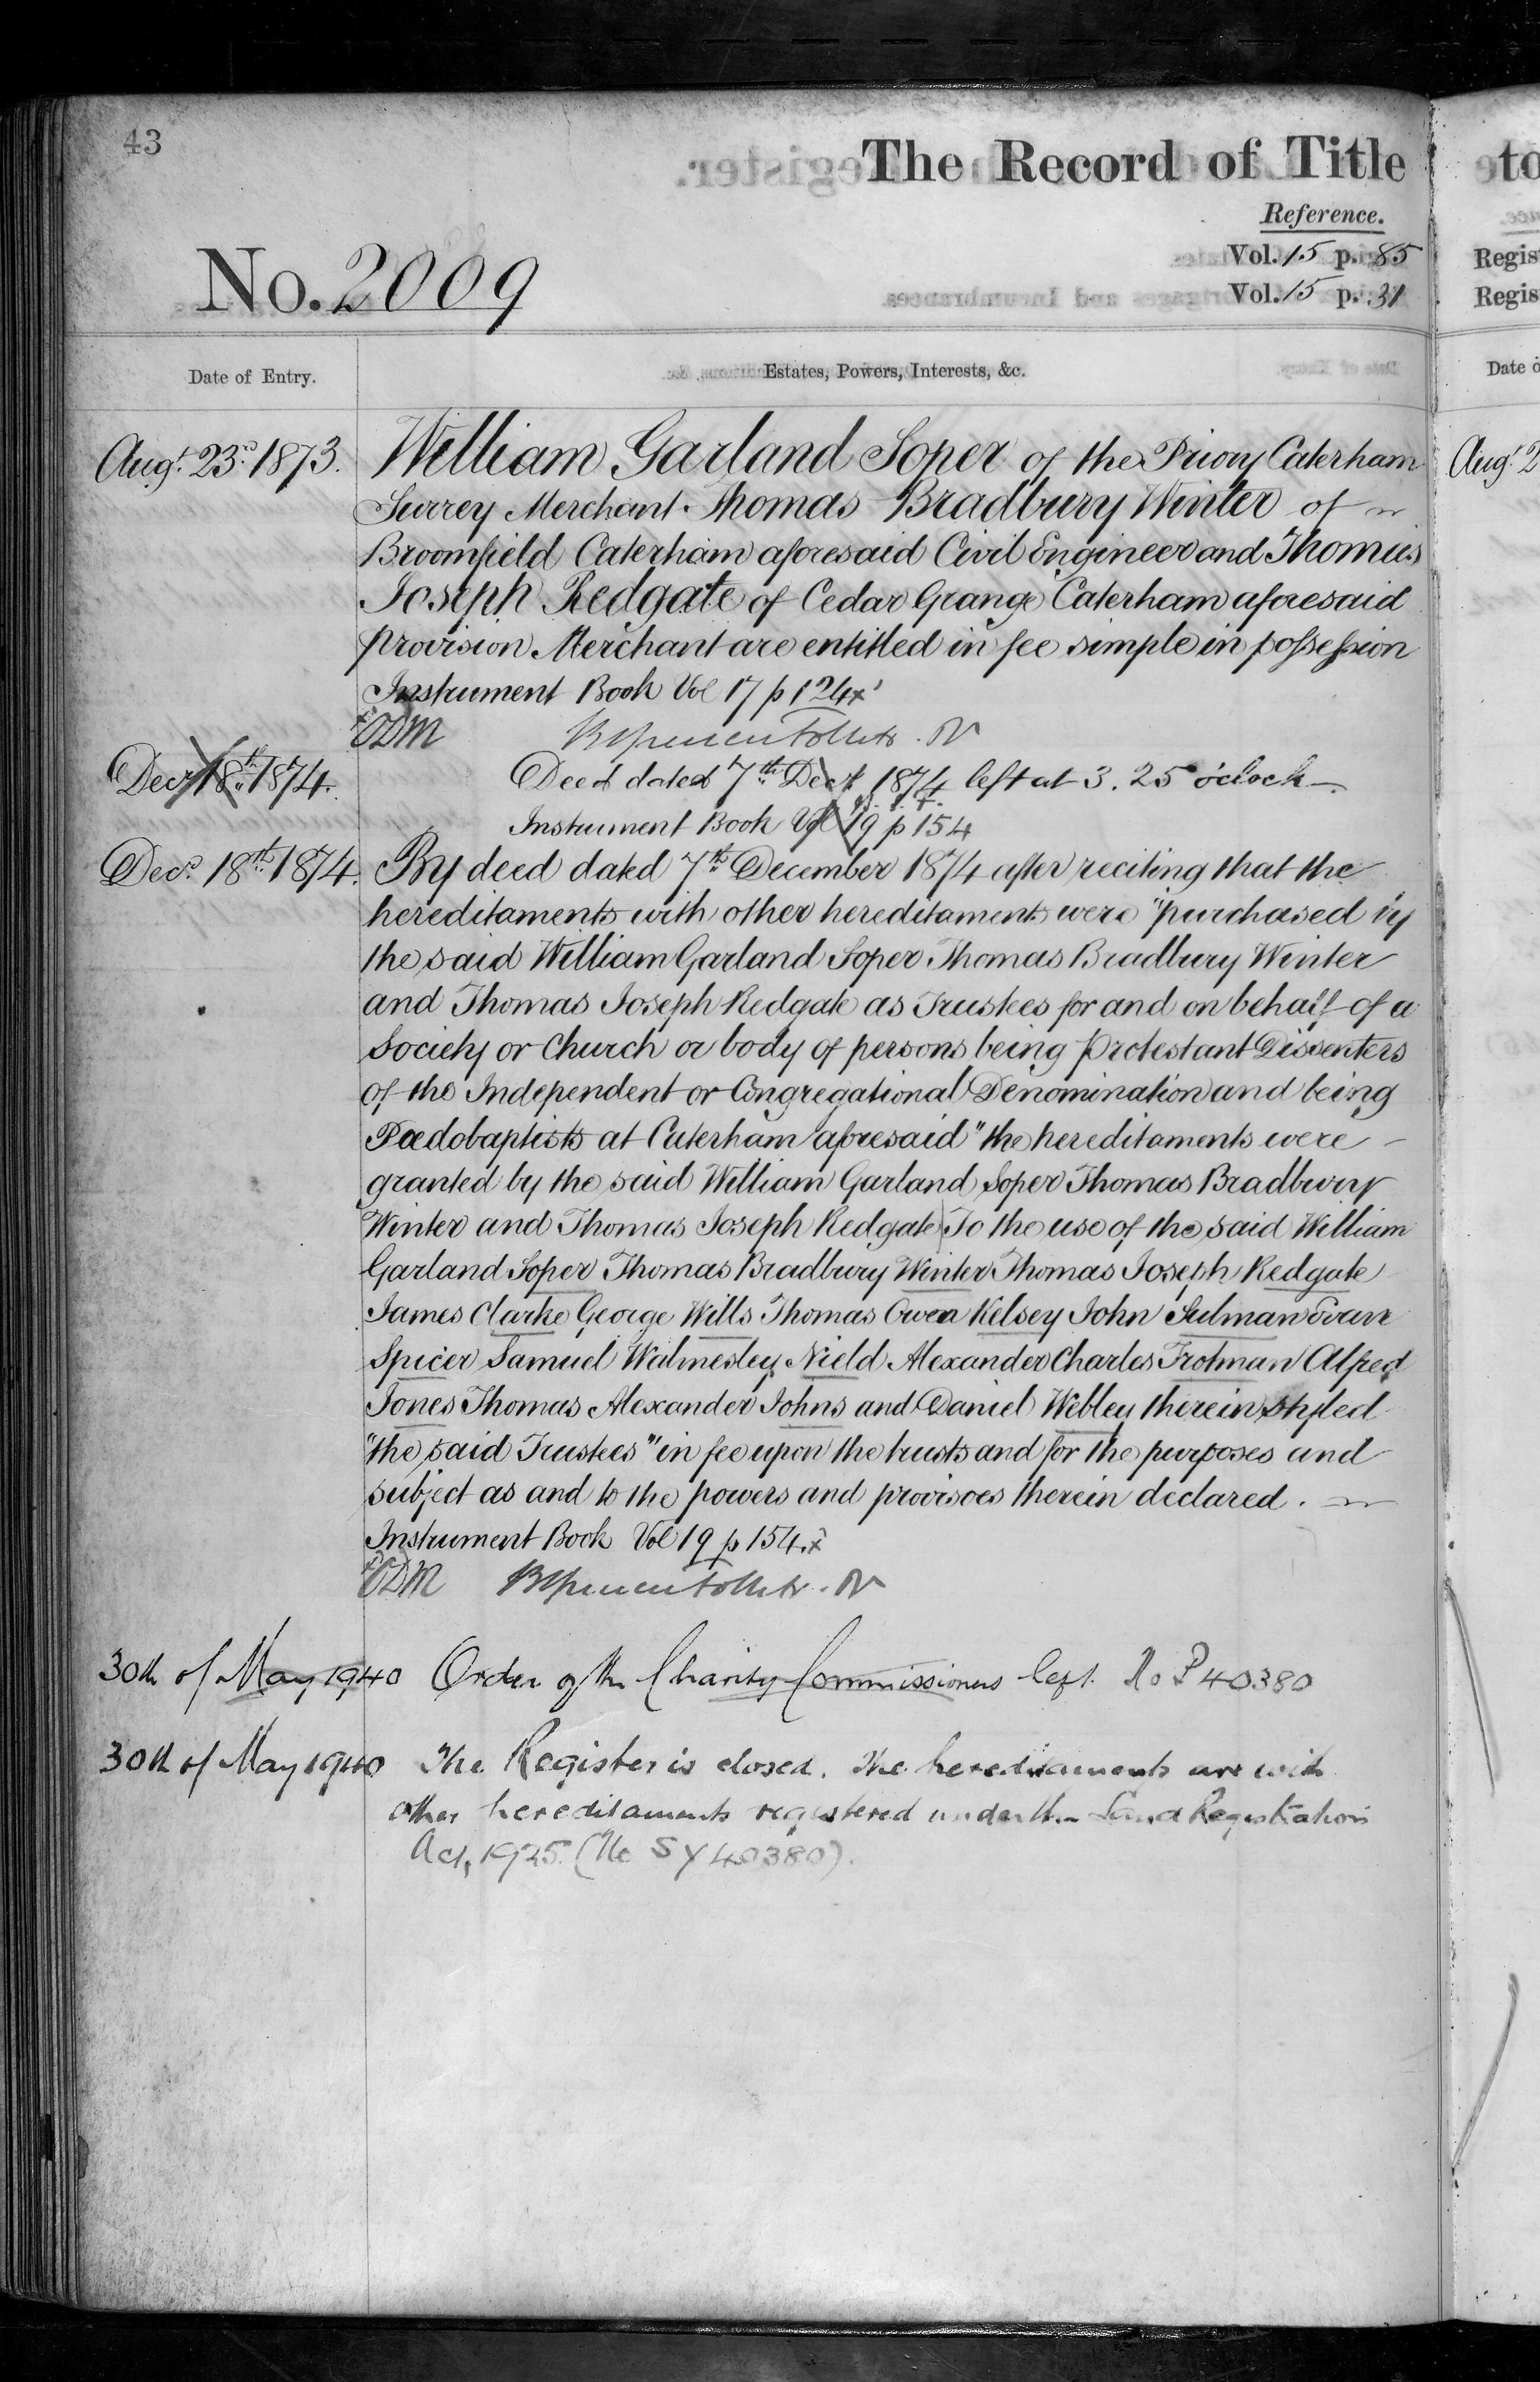 43
The Record of Title
Reference.
No. 2009
Vol. 15 p. 85
Vol. 15 p. 31
Date of Entry.
Estates, Powers, Interests, &c.
Augt. 23rd. 1873. William Garland Soper of the Priory Caterham
Surrey Merchant Thomas Bradbury Winter of
Broomfield Caterham aforesaid Civil Engineer and Thomas
Joseph Redgate of Cedar Grange Caterham aforesaid
provision Merchant are entitled in fee simple in possession
Instrument Book Vol 17 p 124 x
x ODM
Decr 18th. 1874. Deed dated 7th. Decr 1874 left at 3.25 o'clock
Instrument Book Vol 19 p 154
Decr. 18th. 1874. By deed dated 7th. December 1874 after reciting that the
hereditaments with other hereditaments were "purchased by
the said William Garland Soper Thomas Bradbury Winter
and Thomas Joseph Redgate as Trustees for and on behalf of a
Society or Church or body of persons being Protestant Dissenters
of the Independent or Congregational Denomination and being
Pædobaptists at Caterham aforesaid" the hereditaments were
granted by the said William Garland Soper Thomas Bradbury
Winter and Thomas Joseph Redgate To the use of the said William
Garland Soper Thomas Bradbury Winter Thomas Joseph Redgate
James Clarke George Wills Thomas Owen Kelsey John Sulman Evan
Spicer Samuel Walmesley Nield Alexander Charles Trotman Alfred
Jones Thomas Alexander Johns and Daniel Webley therein styled
"the said Trustees" in fee upon the trusts and for the purposes and
subject as and to the powers and provisoes therein declared.
Instrument Book Vol 19 p 154. x
x ODM
30th of May 1940 Order of the Charity Commissioners left. No P 40380
30th of May 1940 The Register is closed. The hereditaments are with
other hereditaments registered under the Land Registration
Act, 1925. (No SY 40380).
to
Regis
Regis
Date o
Augt. 2